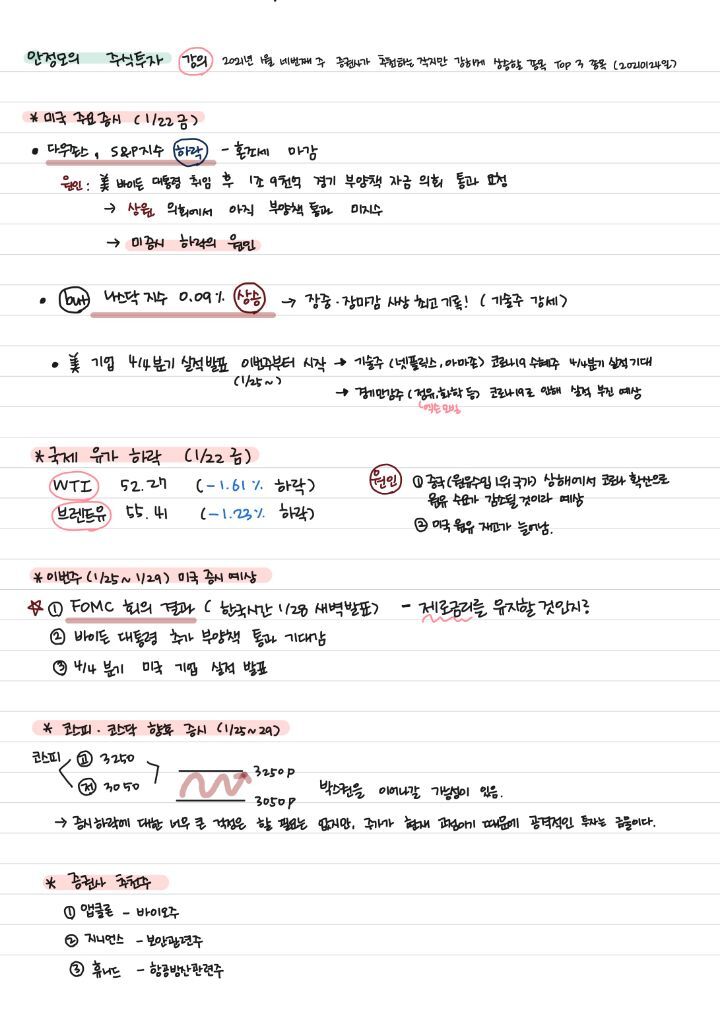 안정모의 주식투자 강의 2021년 1월 네번째 주 증권사가 추천하는 작지만 강하게 상승할 종목 Top 3 종목 (20210124일)
* 미국 주요증시 (1/22 금)
• 다우존스, S&P지수 하락 - 혼조세 마감
원인: 美 바이든 대통령 취임 후 1조 9천억 경기 부양책 자금 의회 통과 요청
→ 상원 의회에서 아직 부양책 통과 미지수
→ 미증시 하락의 원인
• but 나스닥 지수 0.09% 상승 → 장중·장마감 사상 최고기록! (기술주 강세)
• 美 기업 4/4분기 실적발표 이번주부터 시작 → 기술주 (넷플릭스, 아마존) 코로나19 수혜주 4/4분기 실적 기대
(1/25~)
→ 경기민감주 (정유, 화학 등) 코로나19로 인해 실적 부진 예상
엑손모빌
* 국제 유가 하락 (1/22 금)
WTI 52.27 (-1.61% 하락)
브렌트유 55.41 (-1.23% 하락)
원인 ① 중국(원유수입 1위 국가) 상해에서 코로나 확산으로
원유 수요가 감소될 것이라 예상
② 미국 원유 재고가 늘어남.
* 이번주 (1/25~1/29) 미국 증시 예상
☆ ① FOMC 회의 결과 (한국시간 1/28 새벽발표) - 제로금리를 유지할 것인지?
② 바이든 대통령 추가 부양책 통과 기대감
③ 4/4 분기 미국 기업 실적 발표
* 코스피·코스닥 향후 증시 (1/25~29)
코스피 고 3250
저 3050
3250P
3050P
박스권을 이어나갈 가능성이 있음.
→ 증시하락에 대한 너무 큰 걱정은 할 필요는 없지만, 주가가 현재 고점이기 때문에 공격적인 투자는 금물이다.
* 증권사 추천주
① 앱클론 - 바이오주
② 지니언스 - 보안관련주
③ 휴니드 - 항공방산관련주